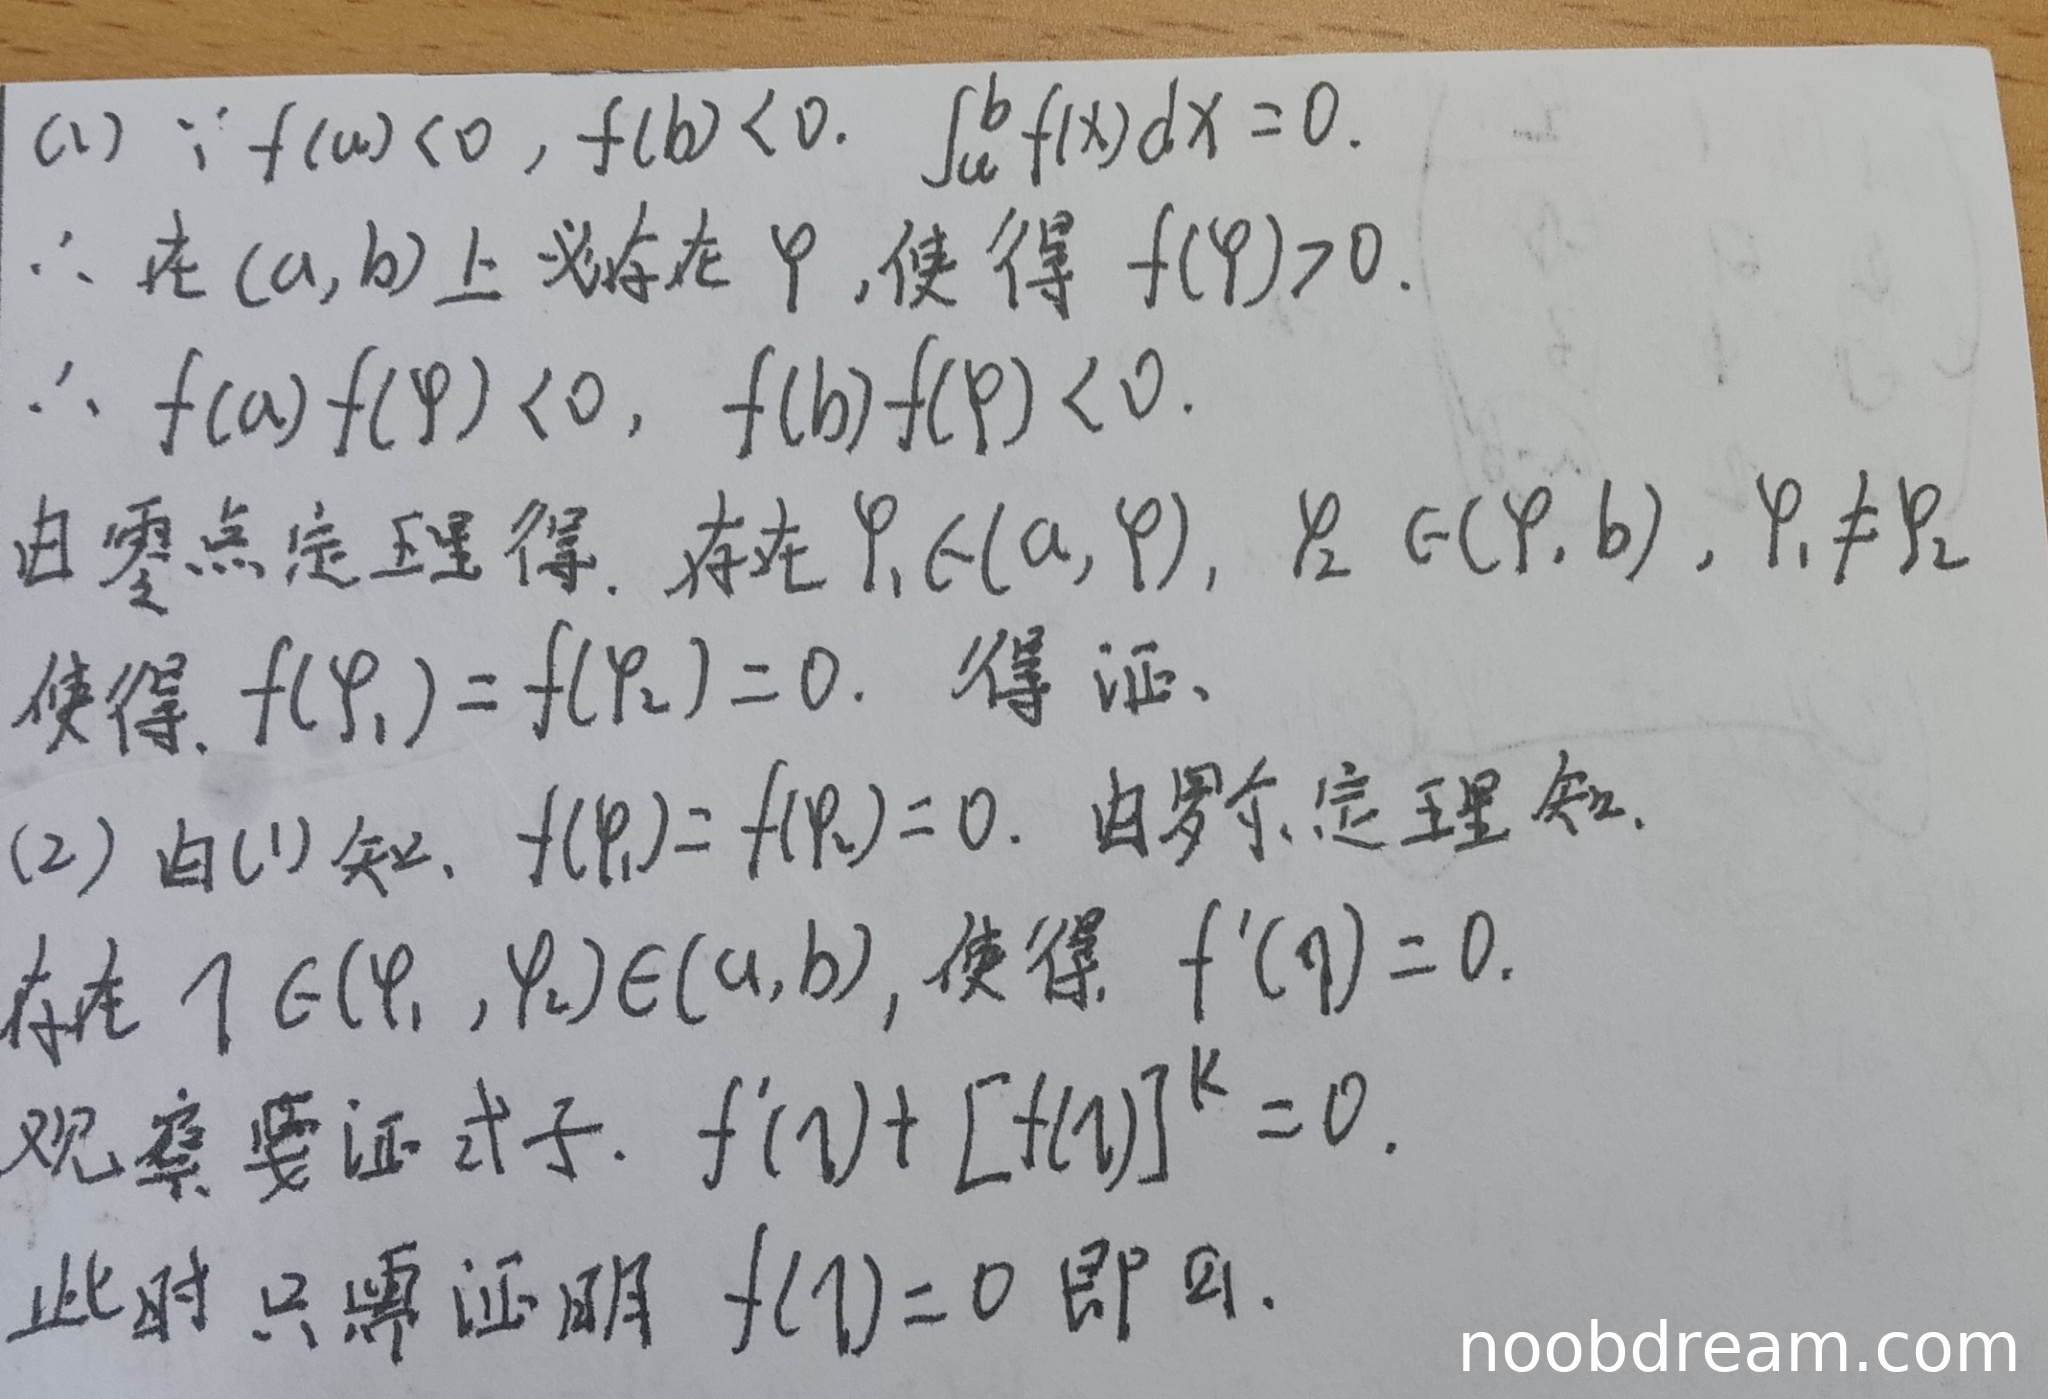 (1) ∵ f(a)<0, f(b)<0. ∫ₐᵇ f(x)dx=0.
∴ 在(a,b)上必存在φ,使得 f(φ)>0.
∴ f(a)f(φ)<0, f(b)f(φ)<0.
由零点定理得.存在φ₁∈(a,φ), φ₂∈(φ,b), φ₁≠φ₂
使得. f(φ₁)=f(φ₂)=0. 得证、
(2) 由(1)知. f(φ₁)=f(φ₂)=0. 由罗尔定理知.
存在 η∈(φ₁,φ₂)∈(a,b),使得 f'(η)=0.
观察要证式子. f'(η)+[f(η)]ᴷ=0.
此时只需证明 f(η)=0 即可.
noobdream.com